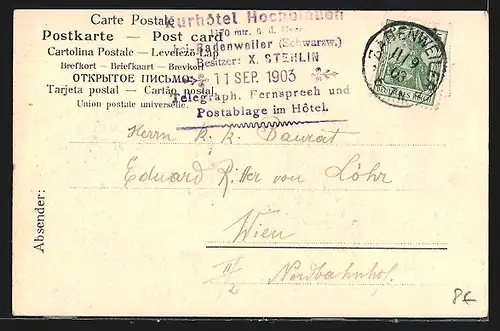 Carte Postale
Postkarte — Post card
Cartolina Postale — Levelező-Lap
Brefkort — Briefkaart — Brevkort
ОТКРЫТОЕ ПИСЬМО
Tarjeta postal — Cartão postal
Union postale universelle.
Kurhôtel Hochblauen
1170 mtr. ü. d. Meer
bei Badenweiler (Schwarzw.)
Besitzer: X. STEHLIN
11 SEP. 1903
Telegraph. Fernsprech und
Postablage im Hôtel.
BADENWEILER
11/9
03
DEUTSCHES REICH
Absender:
Herrn k. k. Baurat
Eduard Ritter von Löhr
Wien
II/2 Nordbahnhof.
8€